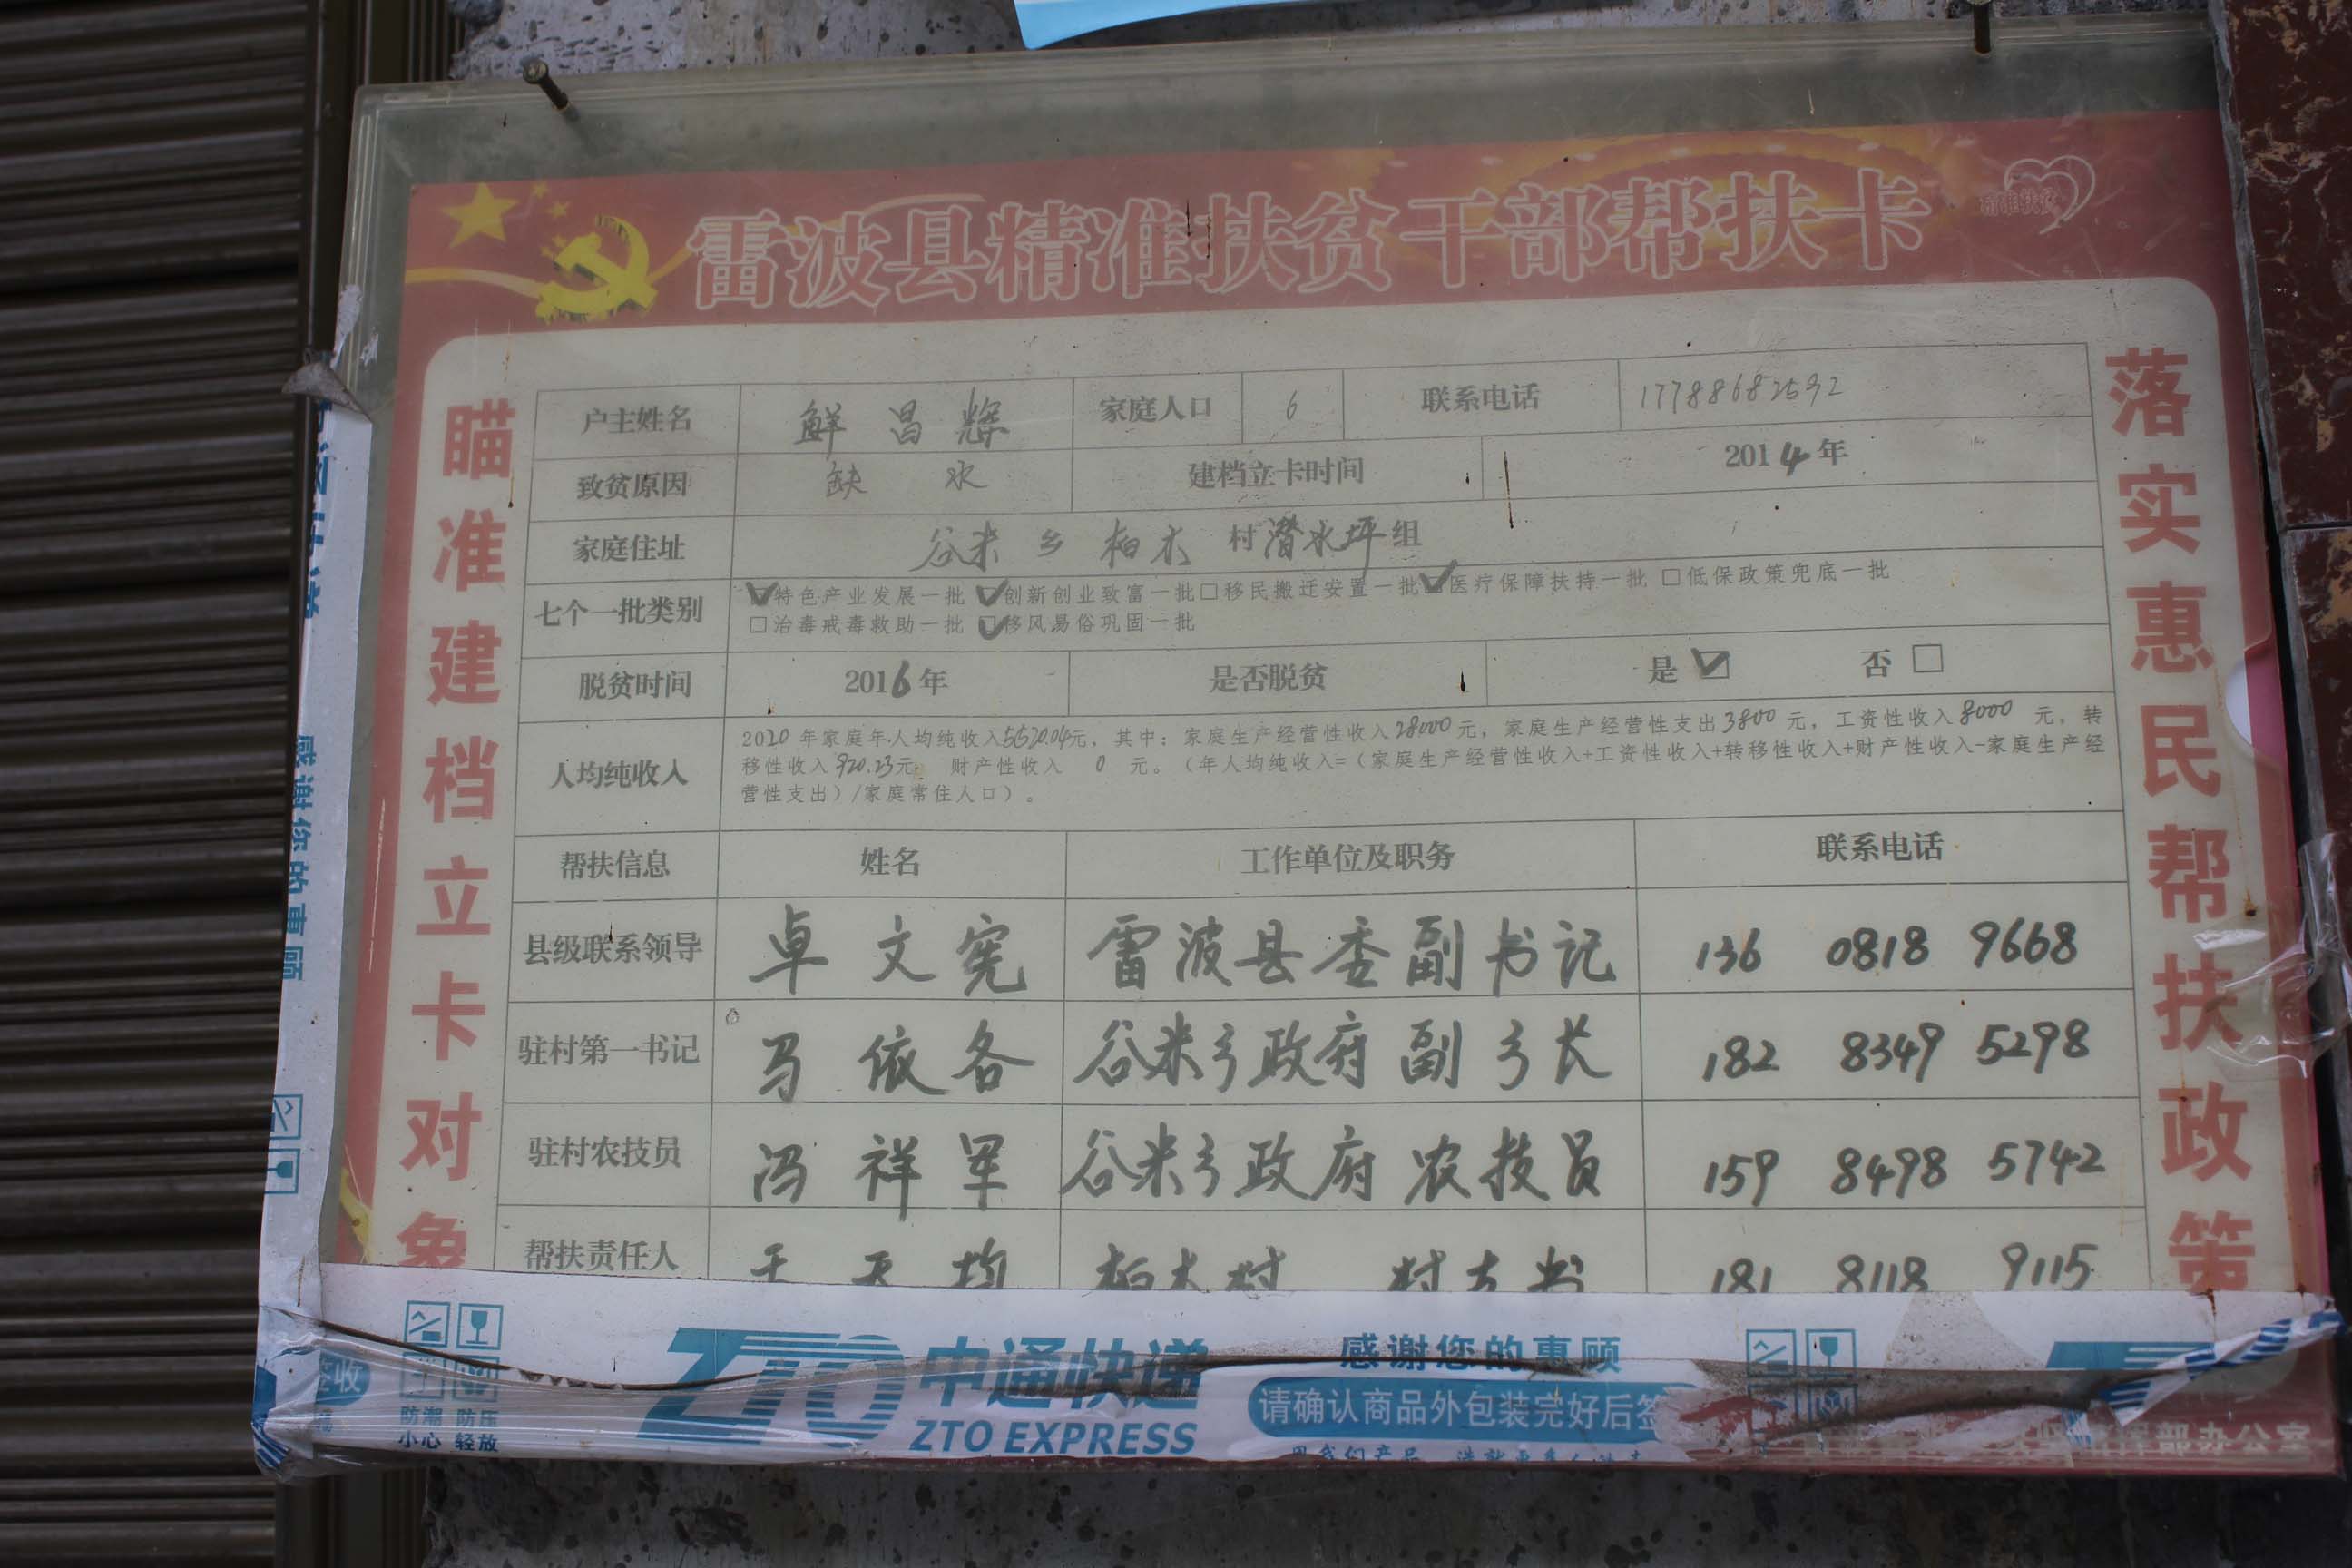 雷波县精准扶贫干部帮扶卡
精准扶贫
瞄准建档立卡对象
落实惠民帮扶政策
户主姓名 鲜昌辉 家庭人口 6 联系电话 17788682592
致贫原因 缺水 建档立卡时间 2014年
家庭住址 谷米乡柏木村潜水坪组
七个一批类别 ☑特色产业发展一批 ☑创新创业致富一批 □移民搬迁安置一批 ☑医疗保障扶持一批 □低保政策兜底一批
□治毒戒毒救助一批 ☑移风易俗巩固一批
脱贫时间 2016年 是否脱贫 是☑ 否□
人均纯收入 2020年家庭年人均纯收入5520.04元，其中：家庭生产经营性收入28000元，家庭生产经营性支出3800元，工资性收入8000元，转
移性收入920.23元 财产性收入 0 元。（年人均纯收入=（家庭生产经营性收入+工资性收入+转移性收入+财产性收入-家庭生产经
营性支出）/家庭常住人口）。
帮扶信息 姓名 工作单位及职务 联系电话
县级联系领导 卓文宪 雷波县委副书记 136 0818 9668
驻村第一书记 马依各 谷米乡政府副乡长 182 8349 5298
驻村农技员 冯祥军 谷米乡政府农技员 159 8498 5742
帮扶责任人 柏木村 村支书 181 8118 9115
感谢您的惠顾
签收
防潮 防压
小心 轻放
ZTO 中通快递
ZTO EXPRESS
感谢您的惠顾
请确认商品外包装完好后签
部办公室